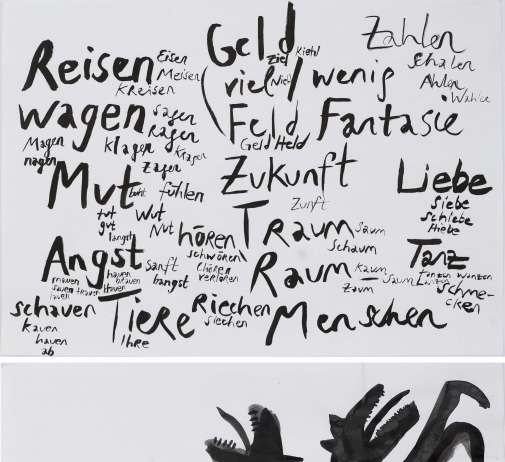 Geld
Zahlen
Reisen Eisen ziel Kiehl Schalen
Meisen viel / wenig Ahlen
Kreisen Niel Wahle
wagen sagen Feld Fantasie
ragen
Magen klagen Kragen Geld Held
nagen zagen
Mut fühlen Zukunft Liebe
tut Wut Zunft Siebe
gut Nut schiebe
längst hören Traum Saum Hiebe
schwören Schaum
Angst sanft chören Tanz
hangst verloren Raum kaum
mauen hauen Zaum Saum
schme-
cken
schauen Tiere Riechen Menschen
kauen siechen
hauen ihre
ab